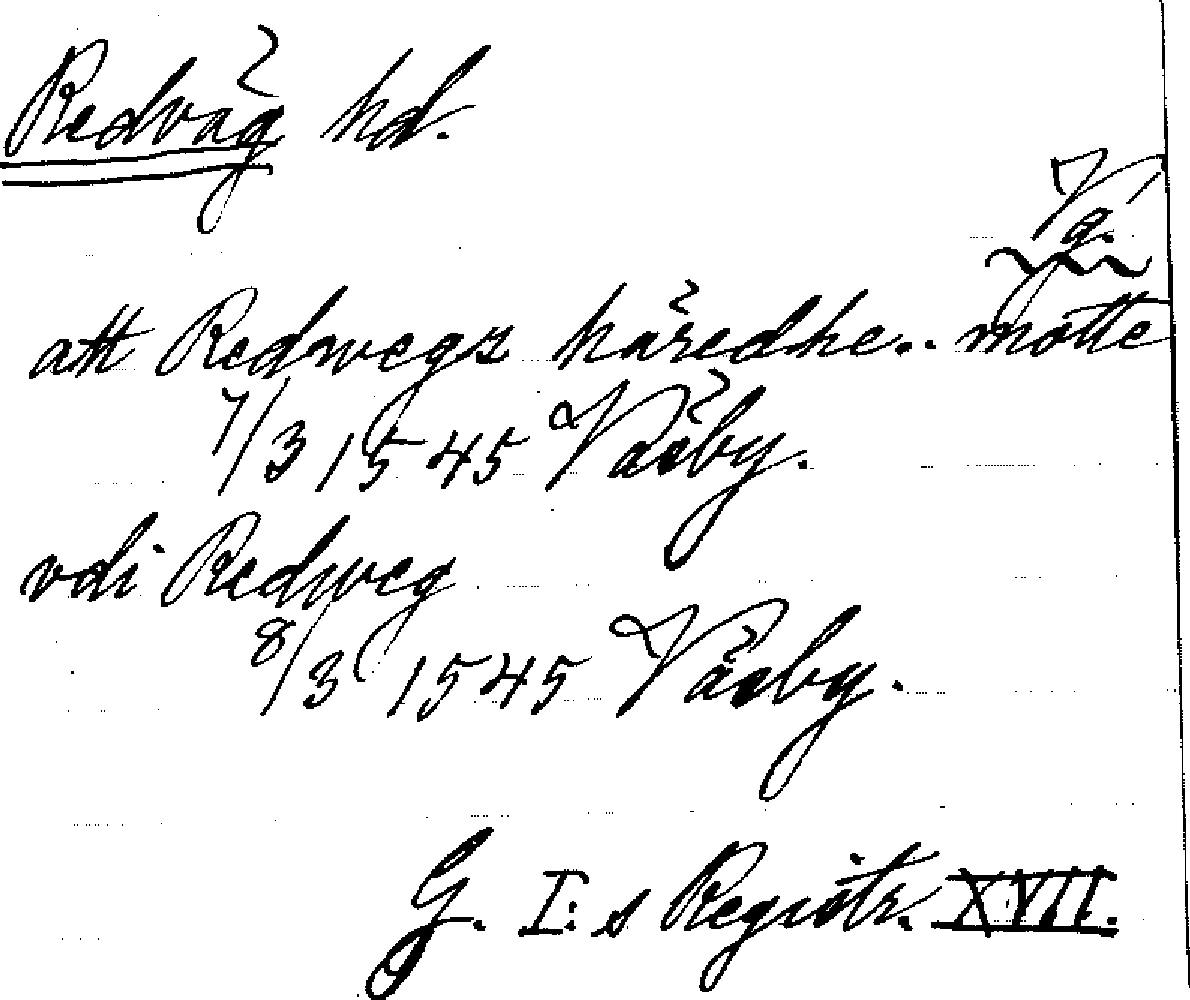 Redväg hd.
Vg.
att Redwegs häredhe.. motte
7/3 1545 Väsby.
vdi Redweg
8/3 1545 Väsby.
G. I:s Registr. XVII.